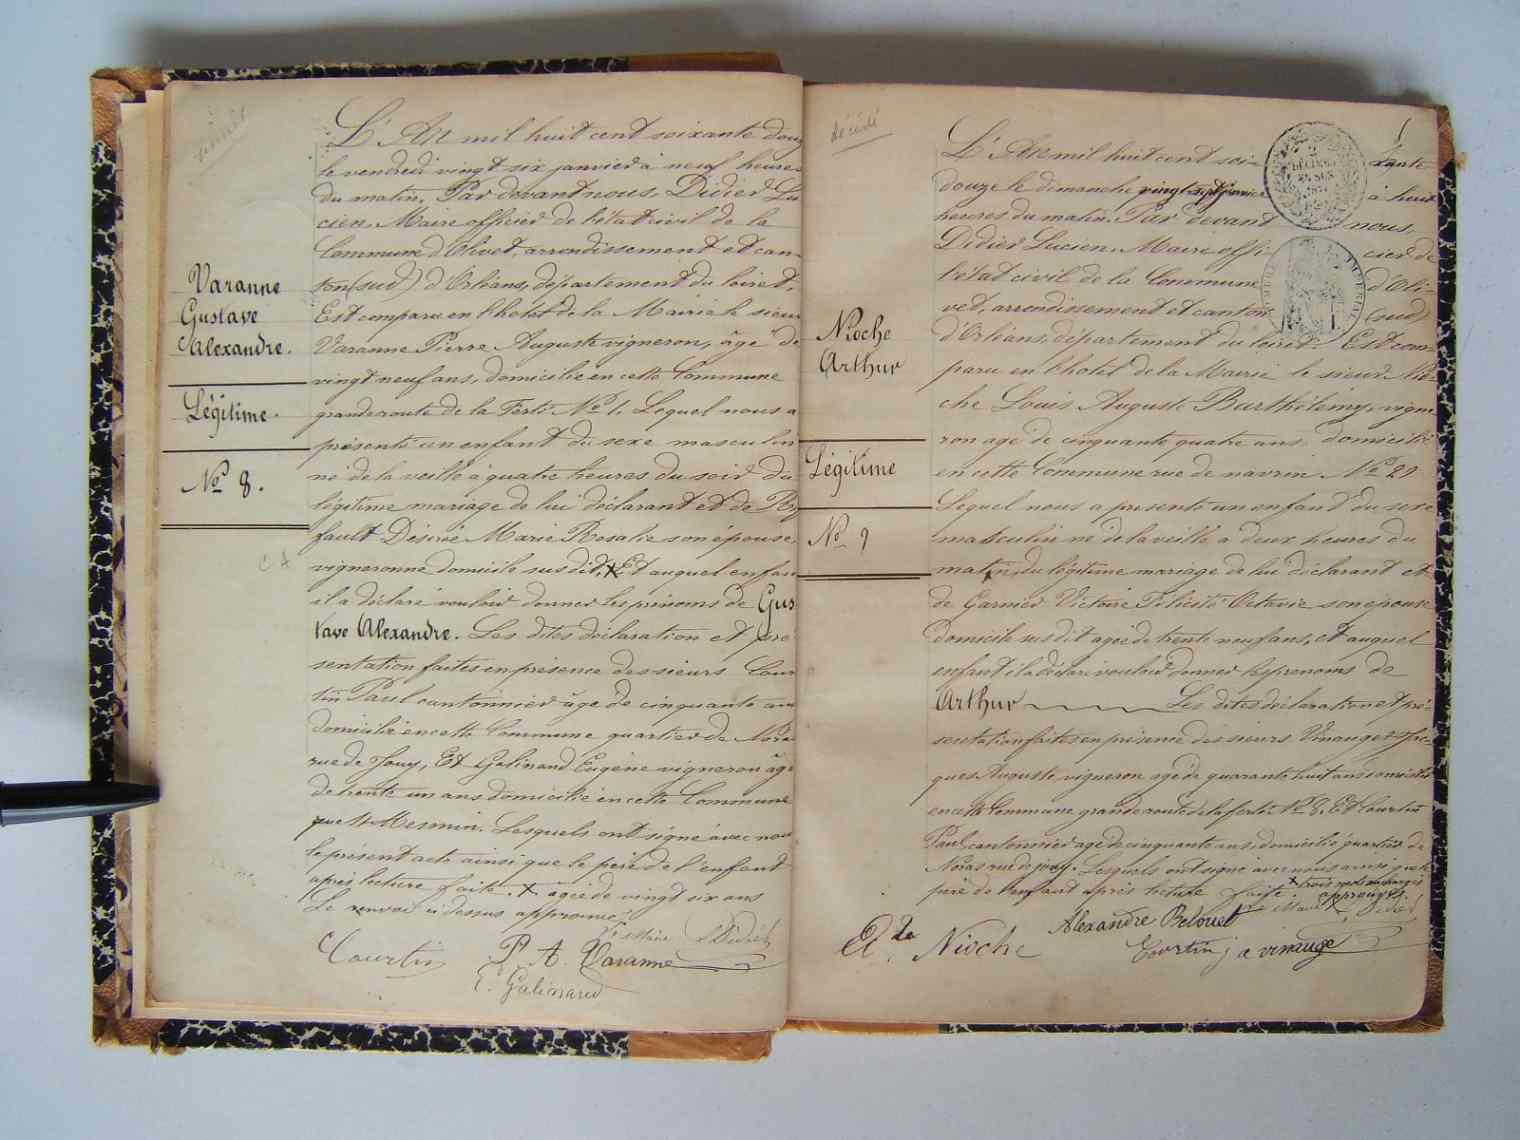 Varanne
Gustave
Alexandre.
Légitime.
No 8.
L'An mil huit cent soixante douze
le vendredi vingt six janvier à neuf heures
du matin. Par devant nous, Didier Lu
cien, Maire officier de l'état civil de la
Commune d'Olivet, arrondissement et can-
ton (sud) d'Orléans, département du loiret,
Est comparu en l'hôtel de la Mairie le sieur
Varanne Pierre Auguste vigneron, âgé de
vingt neuf ans, domicilié en cette Commune
grande route de la Ferté No 1. Lequel nous a
présenté un enfant du sexe masculin
né de la veille à quatre heures du soir du
légitime mariage de lui déclarant et de
fault Désirée Marie Rosalie son épouse,
vigneronne domicile susdit, x Et auquel enfant
il a déclaré vouloir donner les prénoms de Gus
tave Alexandre. Les dites déclaration et pré
sentation faites en présence des sieurs Cour
tin Paul cantonnier âgé de cinquante ans
domicilié en cette Commune quartier de Noras
rue de Jouy, Et Galinand Eugène vigneron âgé
de trente un ans domicilié en cette Commune
rue St Mesmin. Lesquels ont signé avec nous
le présent acte ainsi que le père de l'enfant
après lecture faite. x âgée de vingt six ans
Le renvoi ci dessus approuvé
Le Maire LDidier
Courtin P. A. Varanne
E. Galinand
décédé
Nioche
Arthur
Légitime
No 9
L'An mil huit cent soi- xante
douze le dimanche vingt sept janvier à huit
heures du matin. Par devant nous,
Didier Lucien, Maire offi- cier de
l'état civil de la Commune d'Oli-
vet, arrondissement et canton (sud)
d'Orléans, département du loiret. Est com-
paru en l'hôtel de la Mairie le sieur Nio-
che Louis Auguste Barthélemy, vigne
ron âgé de cinquante quatre ans, domicilié
en cette Commune rue de No 21
Lequel nous a présenté un enfant du sexe
masculin né de la veille à deux heures du
matin, du légitime mariage de lui déclarant et
de Garnier Victoire Félicité Octavie son épouse
domicile susdit agée de trente neuf ans, et auquel
enfant il a déclaré vouloir donner les prénoms de
Arthur Les dites déclaration et pré-
sentation faites en présence des sieurs Vinauger Jac-
ques Auguste vigneron âgé de quarante huit ans domicilié
en cette Commune grande route de la ferté No 8. Et Courtin
Paul cantonnier âgé de cinquante ans, domicilié quartier de
Noras rue de jouy. Lesquels ont signé avec nous ainsi que le
père de l'enfant après lecture faite. x trois mots surchargés
approuvés.
Le Maire LDidier
Alexandre Belouet
Nioche Courtin j a vinauge